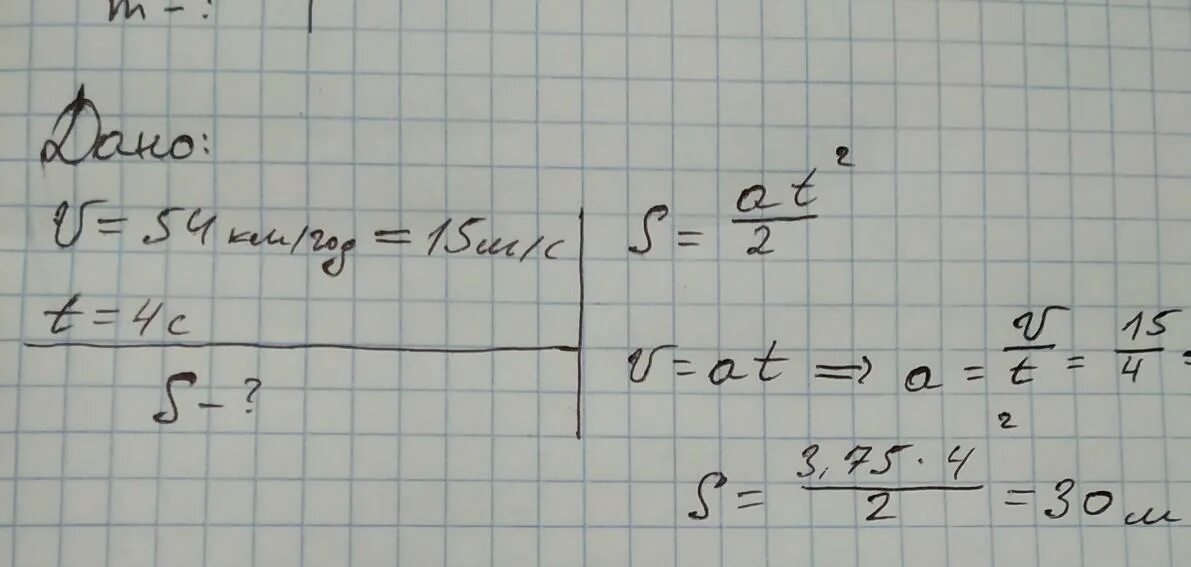 m - ?
Дано:
v = 54 км/год = 15 м/с
t = 4 с
S - ?
S = at²/2
v = at => a = v/t = 15/4 =
S = 3,75 · 4²/2 = 30 м